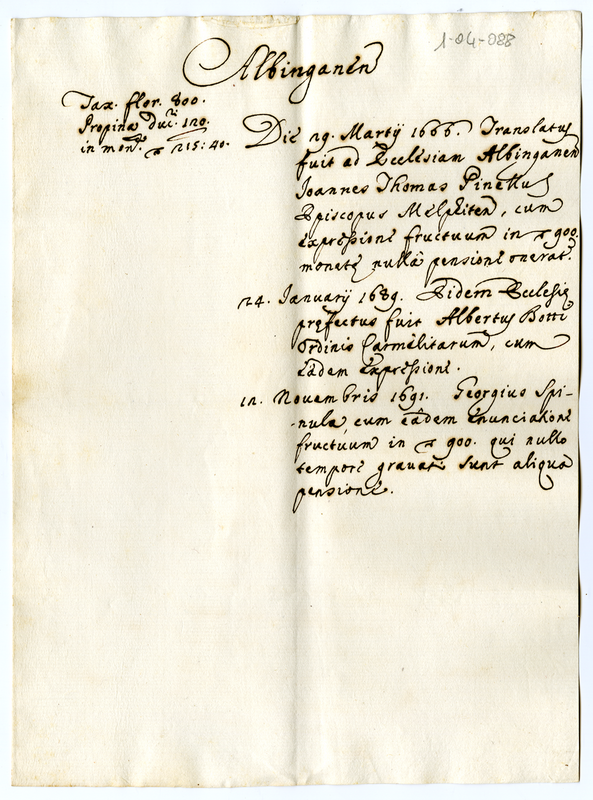 1-04-088
Albinganen
Tax. flor. 800.
Propina duc. 120.
in mon. 215:40.
Die 29. Martij 1666. Translatus
fuit ad Ecclesiam Albinganen
Ioannes Thomas Pinellus
Episcopus Melphiten, cum
expressione fructuum in 900.
monetę nullâ pensione onerat.
24. Ianuarij 1689. Eidem Ecclesię
pręfectus fuit Albertus Botti
Ordinis Carmelitarum, cum
eâdem expressione.
12. Nouembris 1691. Georgius Spi-
-nula, cum eâdem enunciatione
fructuum in 900. qui nullo
tempore grauati sunt aliqua
pensione.